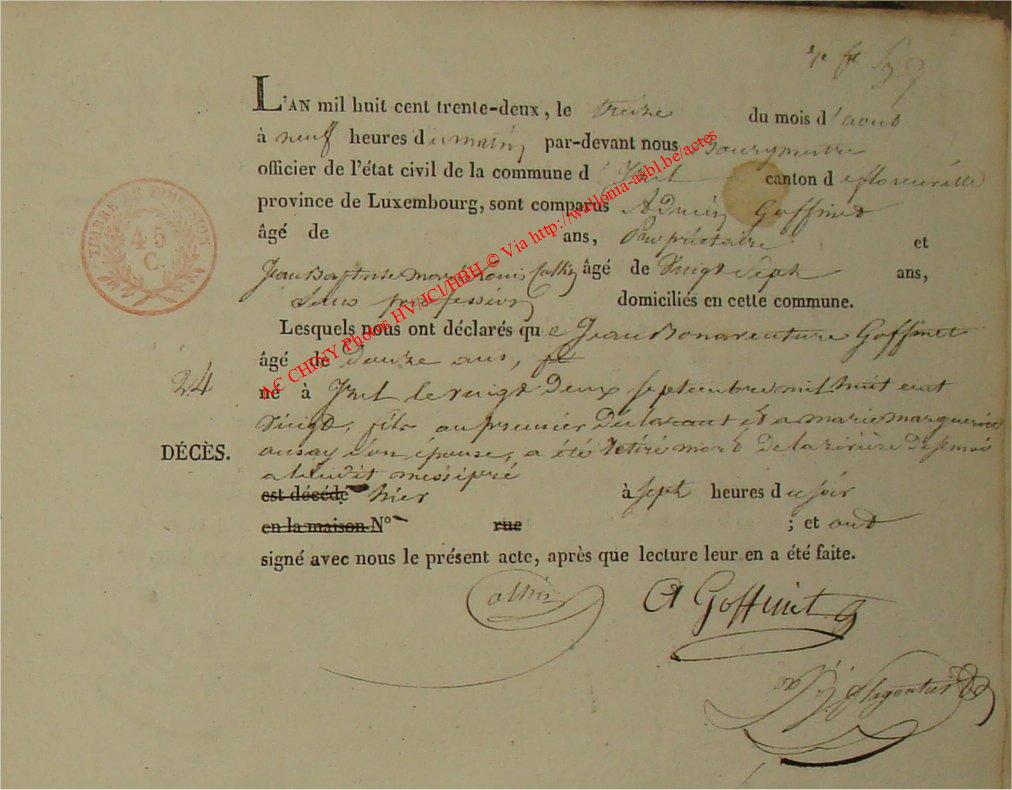 L'AN mil huit cent trente-deux, le treize du mois d'aout
à neuf heures du matin par-devant nous Bourgmestre
officier de l'état civil de la commune d'Izel canton de florenville
province de Luxembourg, sont comparus Adrien Goffinet
âgé de ans, Propriétaire et
Jean Baptiste Louis âgé de Vingt Sept ans,
Sans profession domiciliés en cette commune.
Lesquels nous ont déclarés que Jean Bonaventure Goffinet
âgé de Douze ans,
né à Izel le vingt Deux septembre mil huit cent
24
Vingt, fils au premier Declarant et a marie marguerite
DÉCÈS.
son épouse, a été retiré mort de la rivière de semois
a lieudit
est décédé hier à sept heures du soir
en la maison N° rue ; et ont
signé avec nous le présent acte, après que lecture leur en a été faite.
A Goffinet
TIMBRE DE DIMENSION
45
C.
AC CHINY Photos HV/JCl/HBH © Via http://wallonia-asbl.be/actes